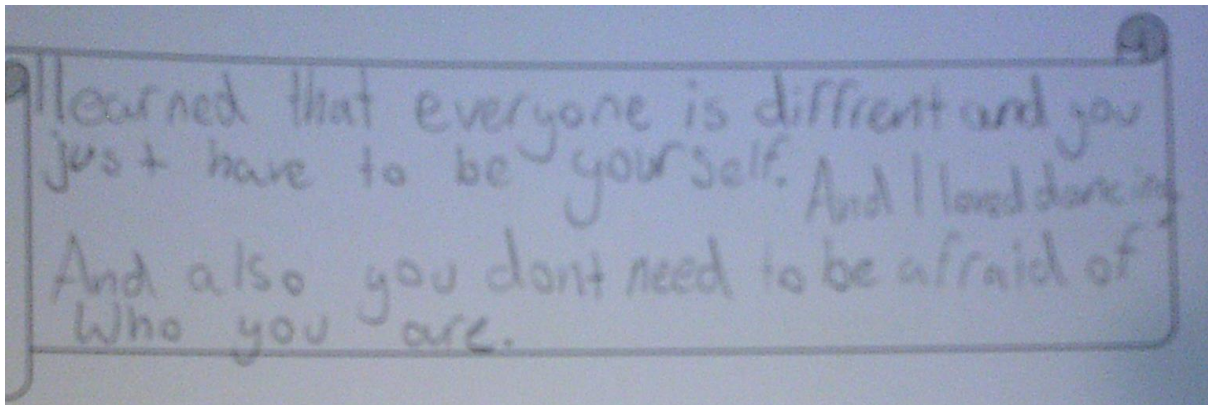 I learned that everyone is diffrent and you
just have to be yourself. And I loved dancing
And also you dont need to be afraid of
Who you are.